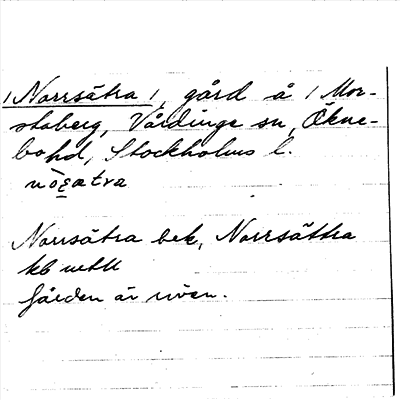 /Norrsätra/, gård å /Mor-
staberg, Vårdinge sn, Ökne-
bohd, Stockholms l.

Norrsätra bek, Norrsättra
kb
Gården är riven.